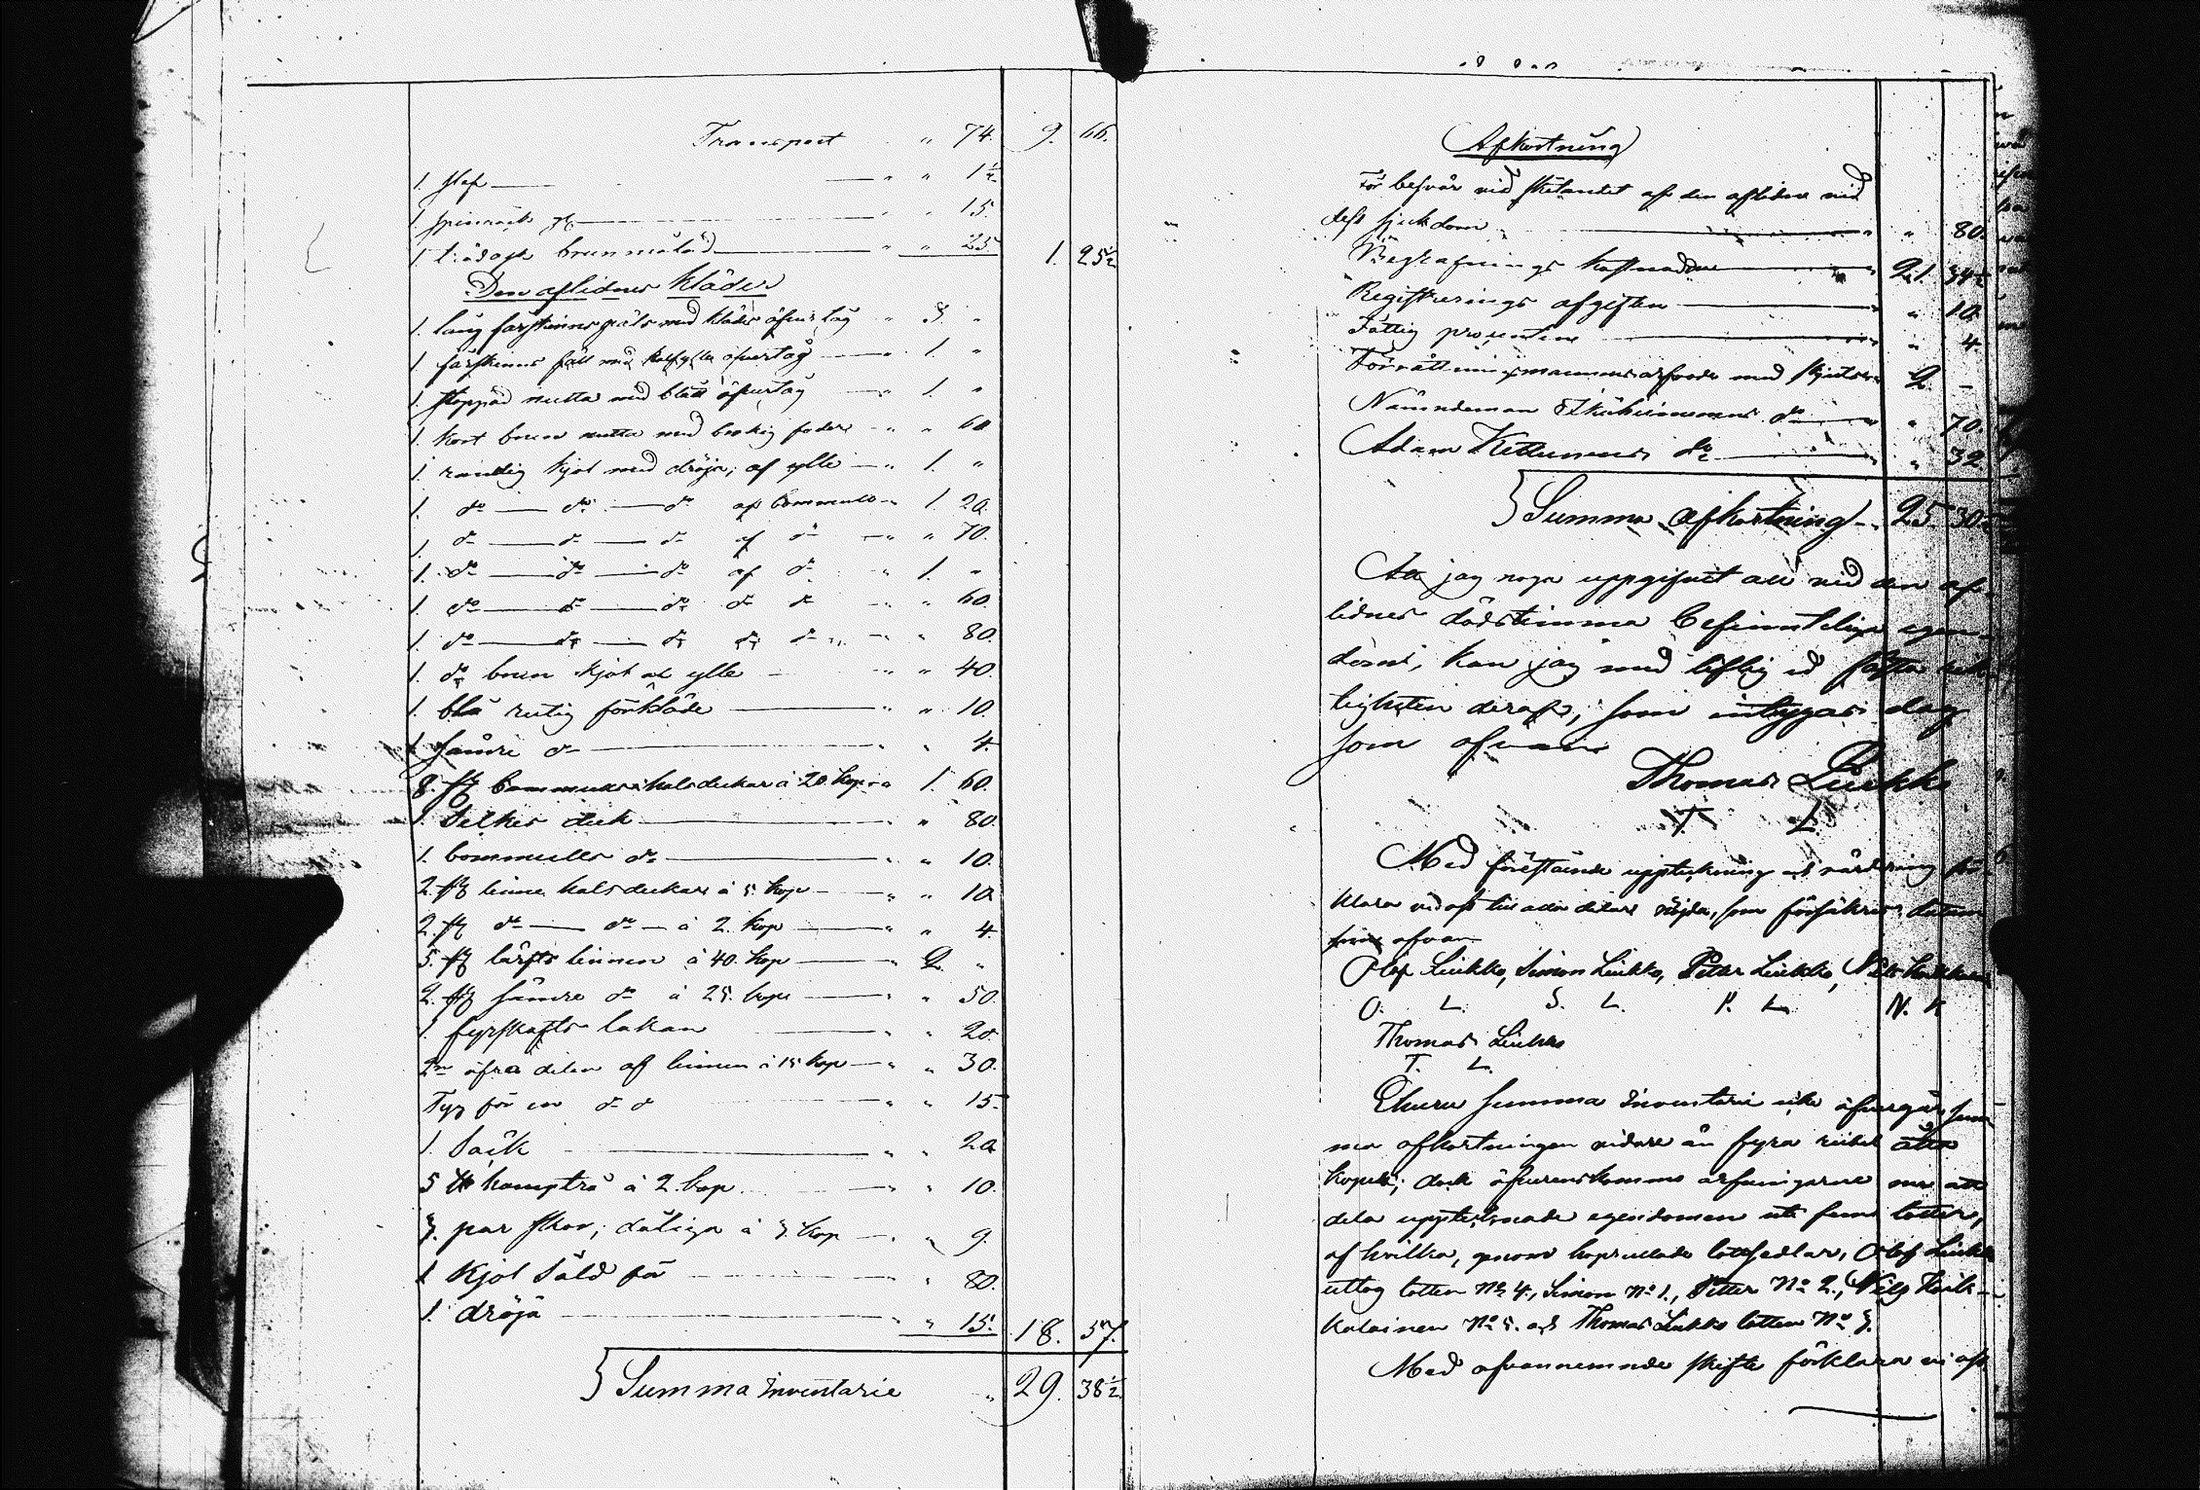 Transport " 74. 9. 66.
1. slef " " 1½
1. spinnrock " " 15.
1. trädask brunmålad " " 25 1. 25½
Den aflidnes kläder
1. lång fårskinnspäls med kläde öfvertag " 3. "
1 fårskinns fäll med öfvertåg " 1. "
1. stoppad mutta med blått öfvertåg " 1. "
1. kort brun mutta med brokig foder " " 60
1. randig kjol med dröja, af ylle " 1. "
1. do do do af bommull " 1. 20.
1 do do do af do " " 70.
1. do do do af do " 1. "
1 do do do do do " " 60.
1. do do do do do " " 80.
1. do brun kjol af ylle " " 40.
1. blå rutig förkläde " " 10.
1 sämre do " " 4.
8. st bommulls halsdukar à 20 kop " 1. 60.
1. Silkes duk " " 80.
1. bommulls do " " 10.
2. st linne halsdukar à 5. kop " " 10.
2. st do do à 2. kop " " 4.
5. st lärfts linnen à 40. kop " 2. "
2. st sämre do à 25. kop " " 50.
1. fyrskafts lakan " " 20.
2ne öfra delar af linnen à 15 kop " " 30.
Tyg för en do do " " 15.
1. Säck " " 20
5 ℔ hamptrå à 2. kop " " 10.
3. par skor, dåliga à 3. kop " " 9.
1 Kjol såld för " " 80.
1. dröja " " 15. 18. 57.
Summa Inventarie " 29. 38½
Afkortning
För besvär vid skötandet af den aflidne vid
dess sjukdom " " 80.
Begrafnings kostnader " 21. 34½
Registrerings afgiften " " 10.
Fattig procenten " " 4.
Förrättningsmannens arfvode med skjuts " 2. –
Nämndeman do " " 70.
Adam Kettunens do " " 32
Summa afkortning " 25. 30½
Att jag noga uppgifvit all vid den af-
lidnes dödstimma befinteliga egen-
dom, kan jag med liflig ed fästa rik-
tigheten deraf, som intygas dag
som ofvan
Thomas Liukko
T. L.
Med förestående uppteckning och värdering för-
klara vi oss till alla delar nöjda, som försäkras datum
som ofvan
Olof Liukko, Simon Liukko, Petter Liukko, Nils
O. L. S. L. P. L. N. K
Thomas Liukko
T. L.
Ehuru summa Inventarie icke öfvergår sum-
ma afkortningen vidare än fyra rubel åtta
kopek; dock öfverenskommo arfvingarne om att
dela upptecknade egendomen uti fem lotter,
af hvilka, genom hoprullade lottsedlar, Olof Liukko
uttog lotten No 4., Simon No 1., Petter No 2., Nils
No 5. och Thomas Liukko lotten No 3.
Med ofvannemnde skifte förklara vi oss